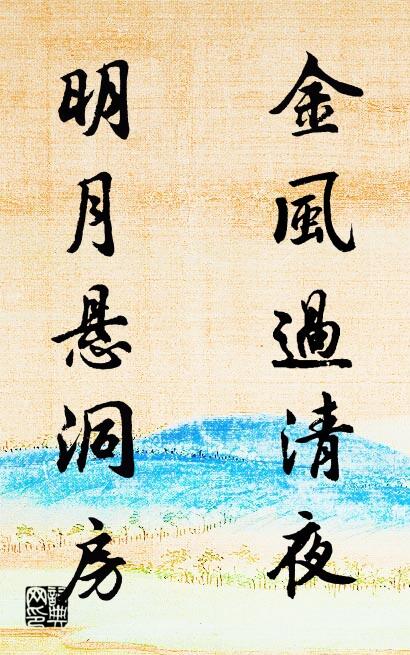 金風過清夜
明月悬洞房